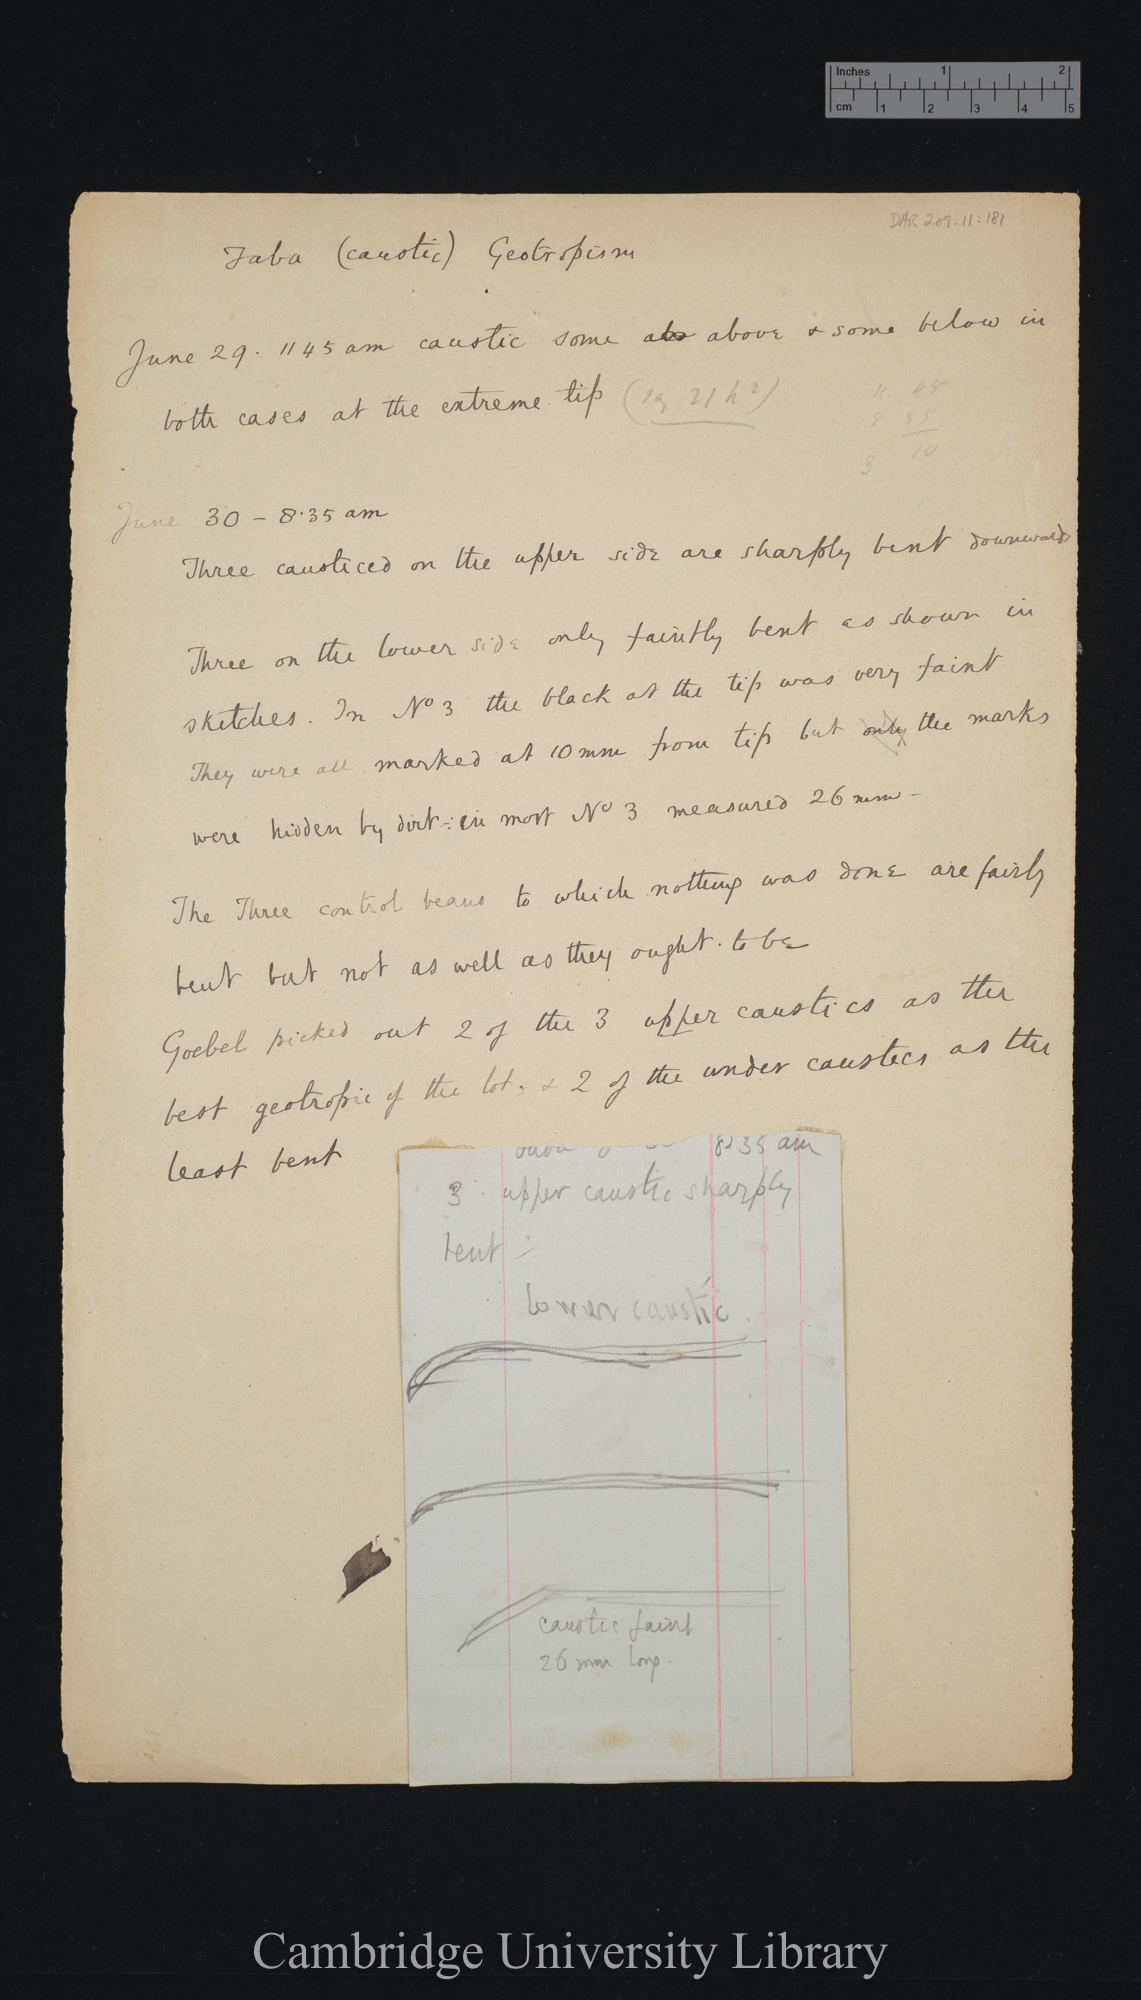 Inches 1 2
cm 1 2 3 4 5
DAR 209.11:181
Faba (caustic) Geotropism
June 29. 11 45 am caustic some abo above & some below in
both cases at the extreme tip (            21 hrs)
11 45
8 35
3 10
June 30 – 8.35 am
Three causticed on the upper side are sharply bent downwards
Three on the lower side only faintly bent as shown in
sketches. In No 3 the black at the tip was very faint
They were all marked at 10 mm from tip but only the marks
were hidden by dirt - in most No 3 measured 26 mm –
The Three control beans to which nothing was done are fairly
bent but not as well as they ought to be
Goebel picked out 2 of the 3 upper caustics as the
best geotropic of the lot, & 2 of the under caustics as the
least bent
8.35 am
3 upper caustic sharply
bent –
lower caustic
caustic faint
26 mm long.
Cambridge University Library